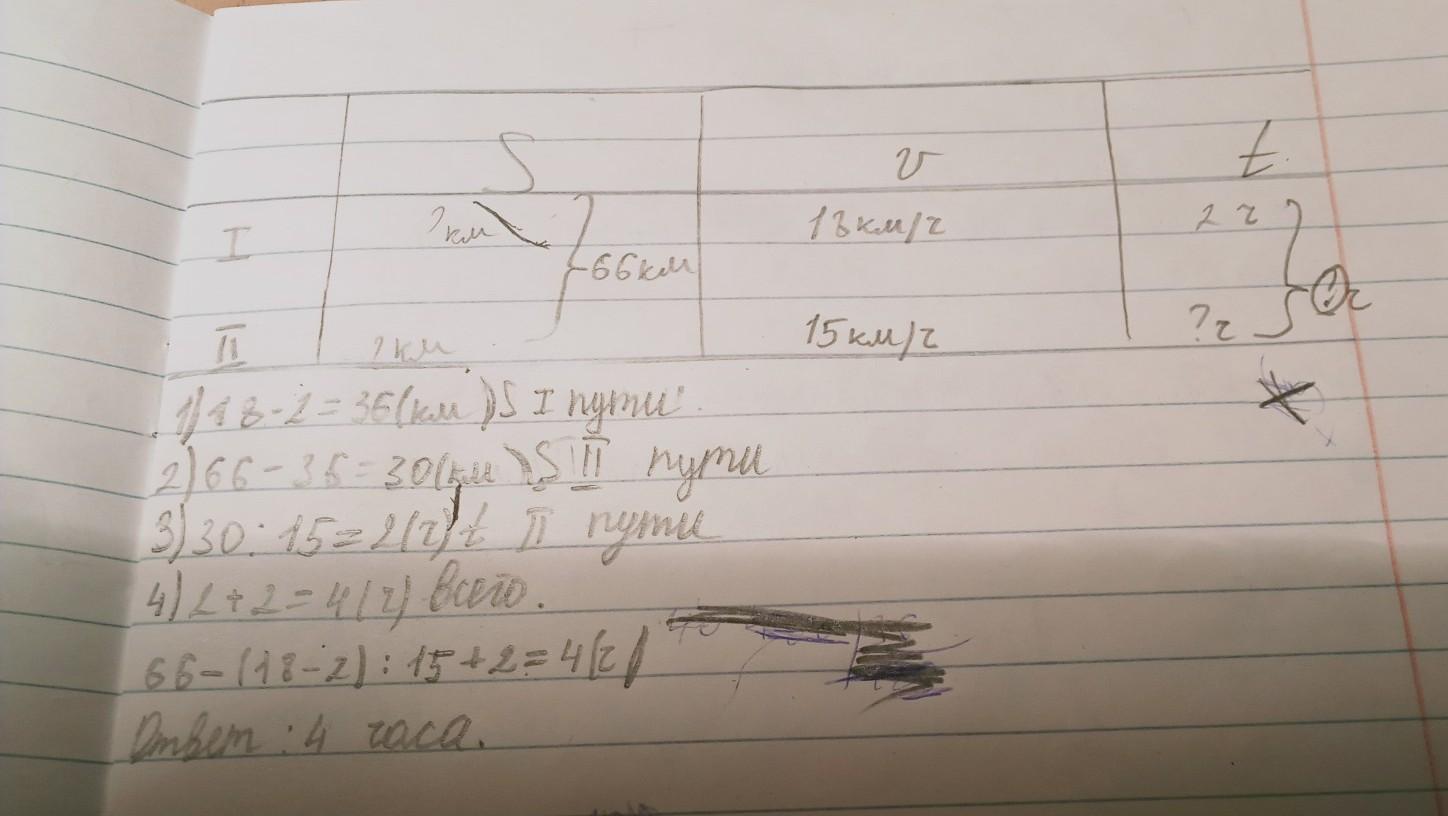 S v t
I ?км 66км 18км/ч 2 ч ?ч
II ?км 15км/ч ?ч
1) 18·2=36(км) S I пути.
2) 66-36=30(км) S II пути
3) 30:15=2(ч) t II пути
4) 2+2=4(ч) всего.
66-(18·2):15+2=4(ч)
Ответ: 4 часа.